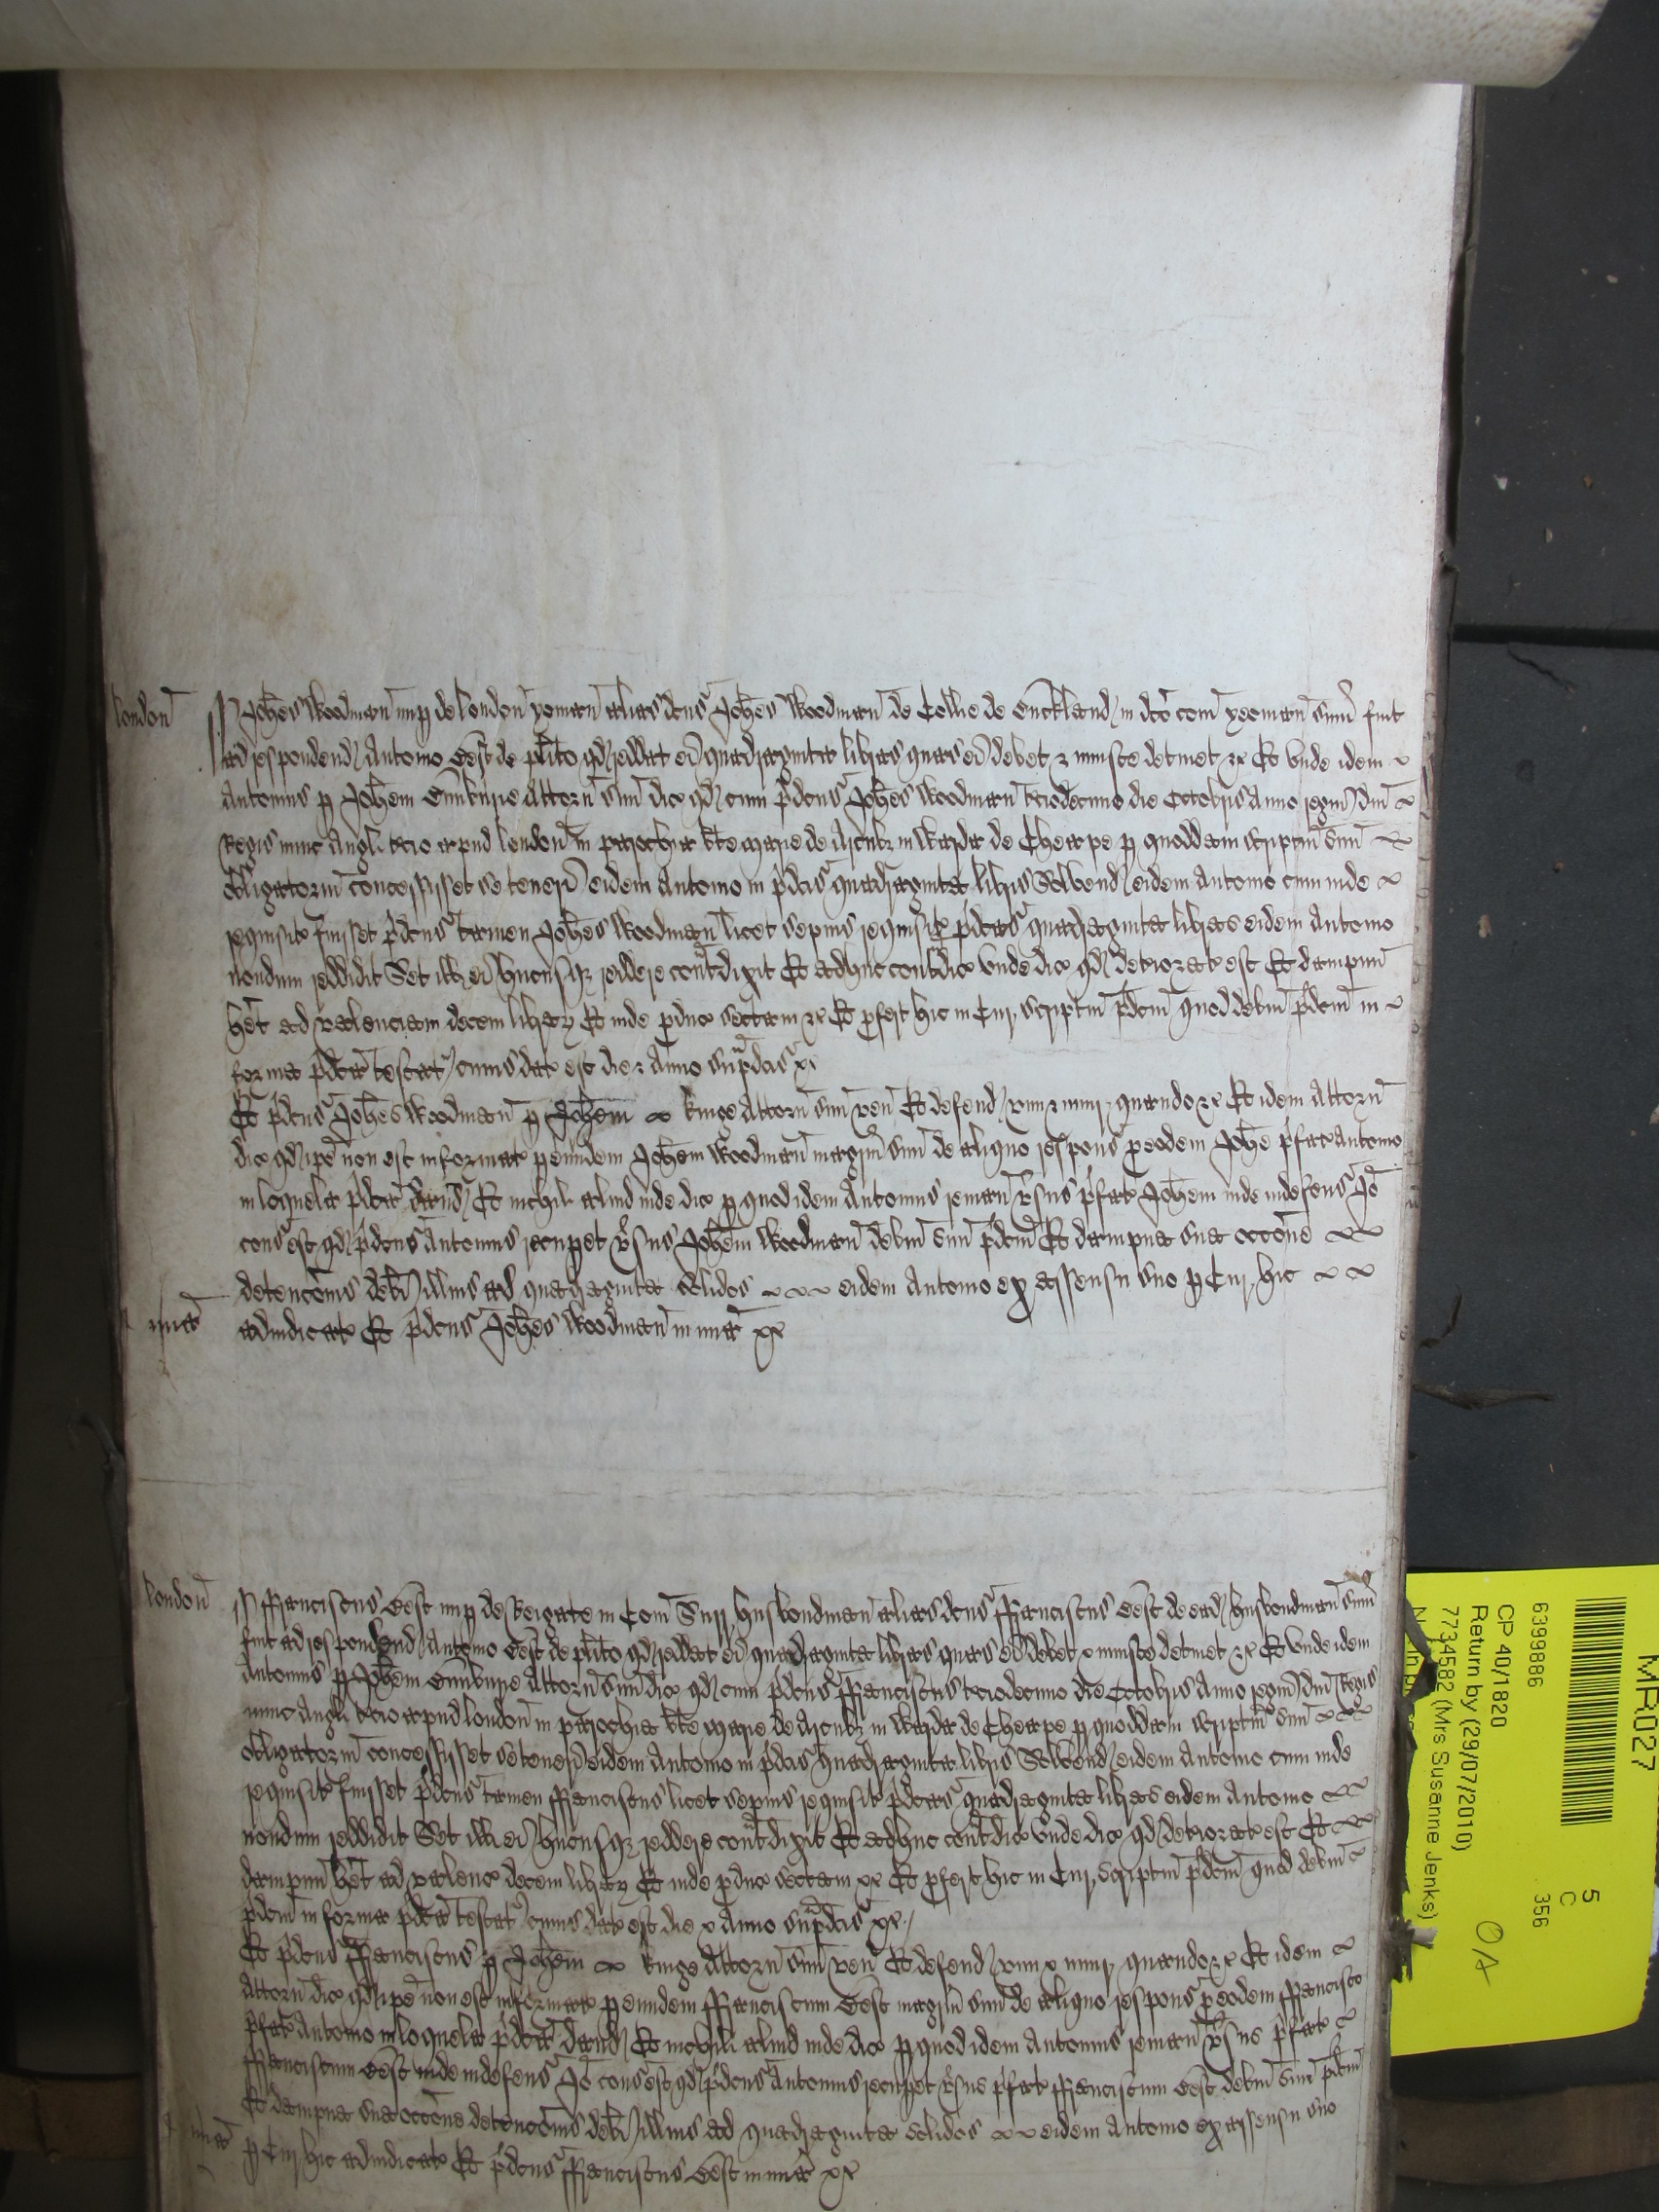 london Johes Woodman nup de london yoman alias dcus Johes Woodman de in dco com yeoman sum fuit
ad respondend Antonio Gest de plito qd reddat ei quadraginta libras quas ei debet & iniuste detinet &c Et unde idem
Antonius p Johem Attorn suu dic qd cum pdcus Johes Woodman terciodecimo die Octobris Anno regni dni
Regis nunc Angl tcio apud london in parochia bte marie de Arcub3 in Warda de Cheape p quoddam scriptm suu
obligatoriu concessisset se teneri eidem Antonio in pdcis quadraginta libris Solvend eidem Antonio cum inde
requisit fuisset pdcus tamen Johes Woodman licet sepius requisit pdcas quadraginta libras eidem Antonio
nondum reddidit Set ill ei hucusq3 reddere contdixit Et adhuc contdic unde dic qd deteriorat est Et dampnu
het ad valenciam decem librar Et inde pduc sectam &c Et pfert hic in Cur scriptm pdcm quod debm pdcm in
forma pdca testat cuius dat est die & Anno supdcis &c
Et pdcus Johes Woodman p Johem kinge Attorn suu ven Et defend vim & iniur quando &c Et idem Attorn
dic qd ipe non est informat p eundem Johem Woodman magrm suu de aliquo respons p eodem Johe pfat Antonio
in loquela pdca dand Et nichil aliud inde dic p quod idem Antonius reman vsus pfat Johem inde indefens Io
cons est qd pdcus Antonius recupet vsus Johem Woodman debm suu pdcm Et dampna sua occone
detencois debi illius ad quadraginta solidos eidem Antonio ex assensu suo p Cur hic
mia adiudicat Et pdcus Johes Woodman in mia &c
london Franciscus Gest nup de Reigate in Com Surr husbondman alias dcus Franciscus Gest de ead husbondman sum
fuit ad respondend Antonio Gest de plito qd reddat ei quadraginta libras quas ei debet & iniuste detinet &c Et unde idem
Antonius p Johem Attorn suu dic qd cum pdcus Franciscus terciodecimo die Octobris Anno regni dni Regis
nunc Angl tcio apud london in parochia bte marie de Arcub3 in Warda de Cheape p quoddam scriptm suu
obligatoriu concessisset se teneri eidem Antonio in pdcis quadraginta libris Solvend eidem Antonio cum inde
requisit fuisset pdcus tamen Franciscus licet sepius requisit pdcas quadraginta libras eidem Antonio
nondum reddidit Set ill ei hucusq3 reddere contdixit Et adhuc contdic unde dic qd deteriorat est Et
dampnu het ad valenc decem librar Et inde pduc sectam &c Et pfert hic in Cur scriptm pdcm quod debm
pdcm in forma pdca testat cuius dat est die & Anno supdcis &c
Et pdcus Franciscus p Johem kinge Attorn suu ven Et defend vim & iniur quando &c Et idem
Attorn dic qd ipe non est informat p eundem Franciscum Gest magrm suu de aliquo respons p eodem Francisco
pfat Antonio in loquela pdca dand Et nichil aliud inde dic p quod idem Antonius reman vsus pfat
Franciscum Gest inde indefens Io cons est qd pdcus Antonius recupet vsus pfat Franciscum Gest debm suu pdcm
Et dampna sua occone detencois debi illius ad quadraginta solidos eidem Antonio ex assensu suo
mia p Cur hic adiudicat Et pdcus Franciscus Gest in mia &c
MR027
5
C
6399886 356
CP 40/1820
Return by (29/07/2010)
7734582 (Mrs Susanne Jenks)